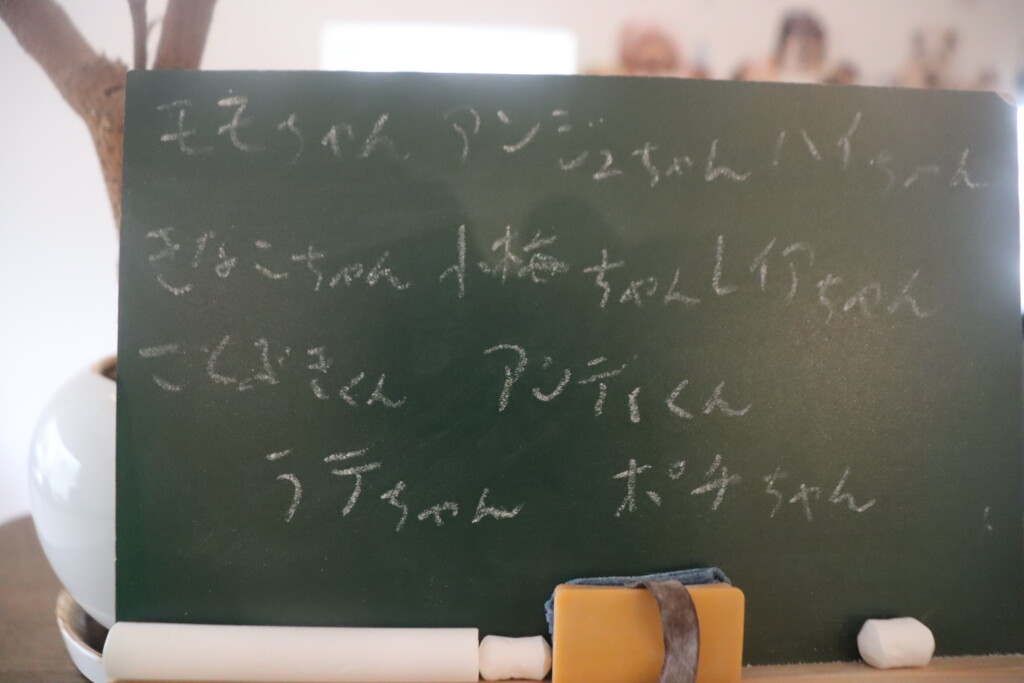 モモちゃん アンジュちゃん ハイちゃん
きなこちゃん 小梅ちゃん レイアちゃん
こてつくん アンディくん
ラテちゃん ポチちゃん